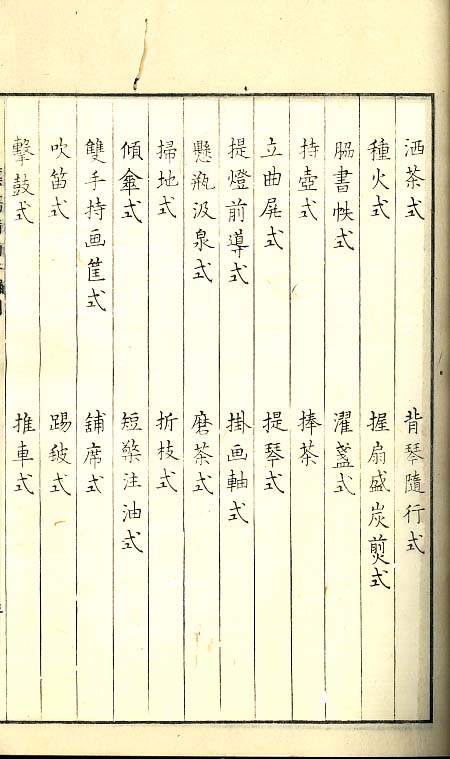 洒茶式 背琴隨行式
種火式 握扇盛炭煎式
脇書帙式 濯盞式
持壺式 捧茶
立曲屍式 提琴式
提燈前導式 掛画軸式
懸瓶汲泉式 磨茶式
掃地式 折枝式
傾傘式 短檠注油式
雙手持画筐式 鋪席式
吹笛式 踢毬式
擊鼓式 推車式